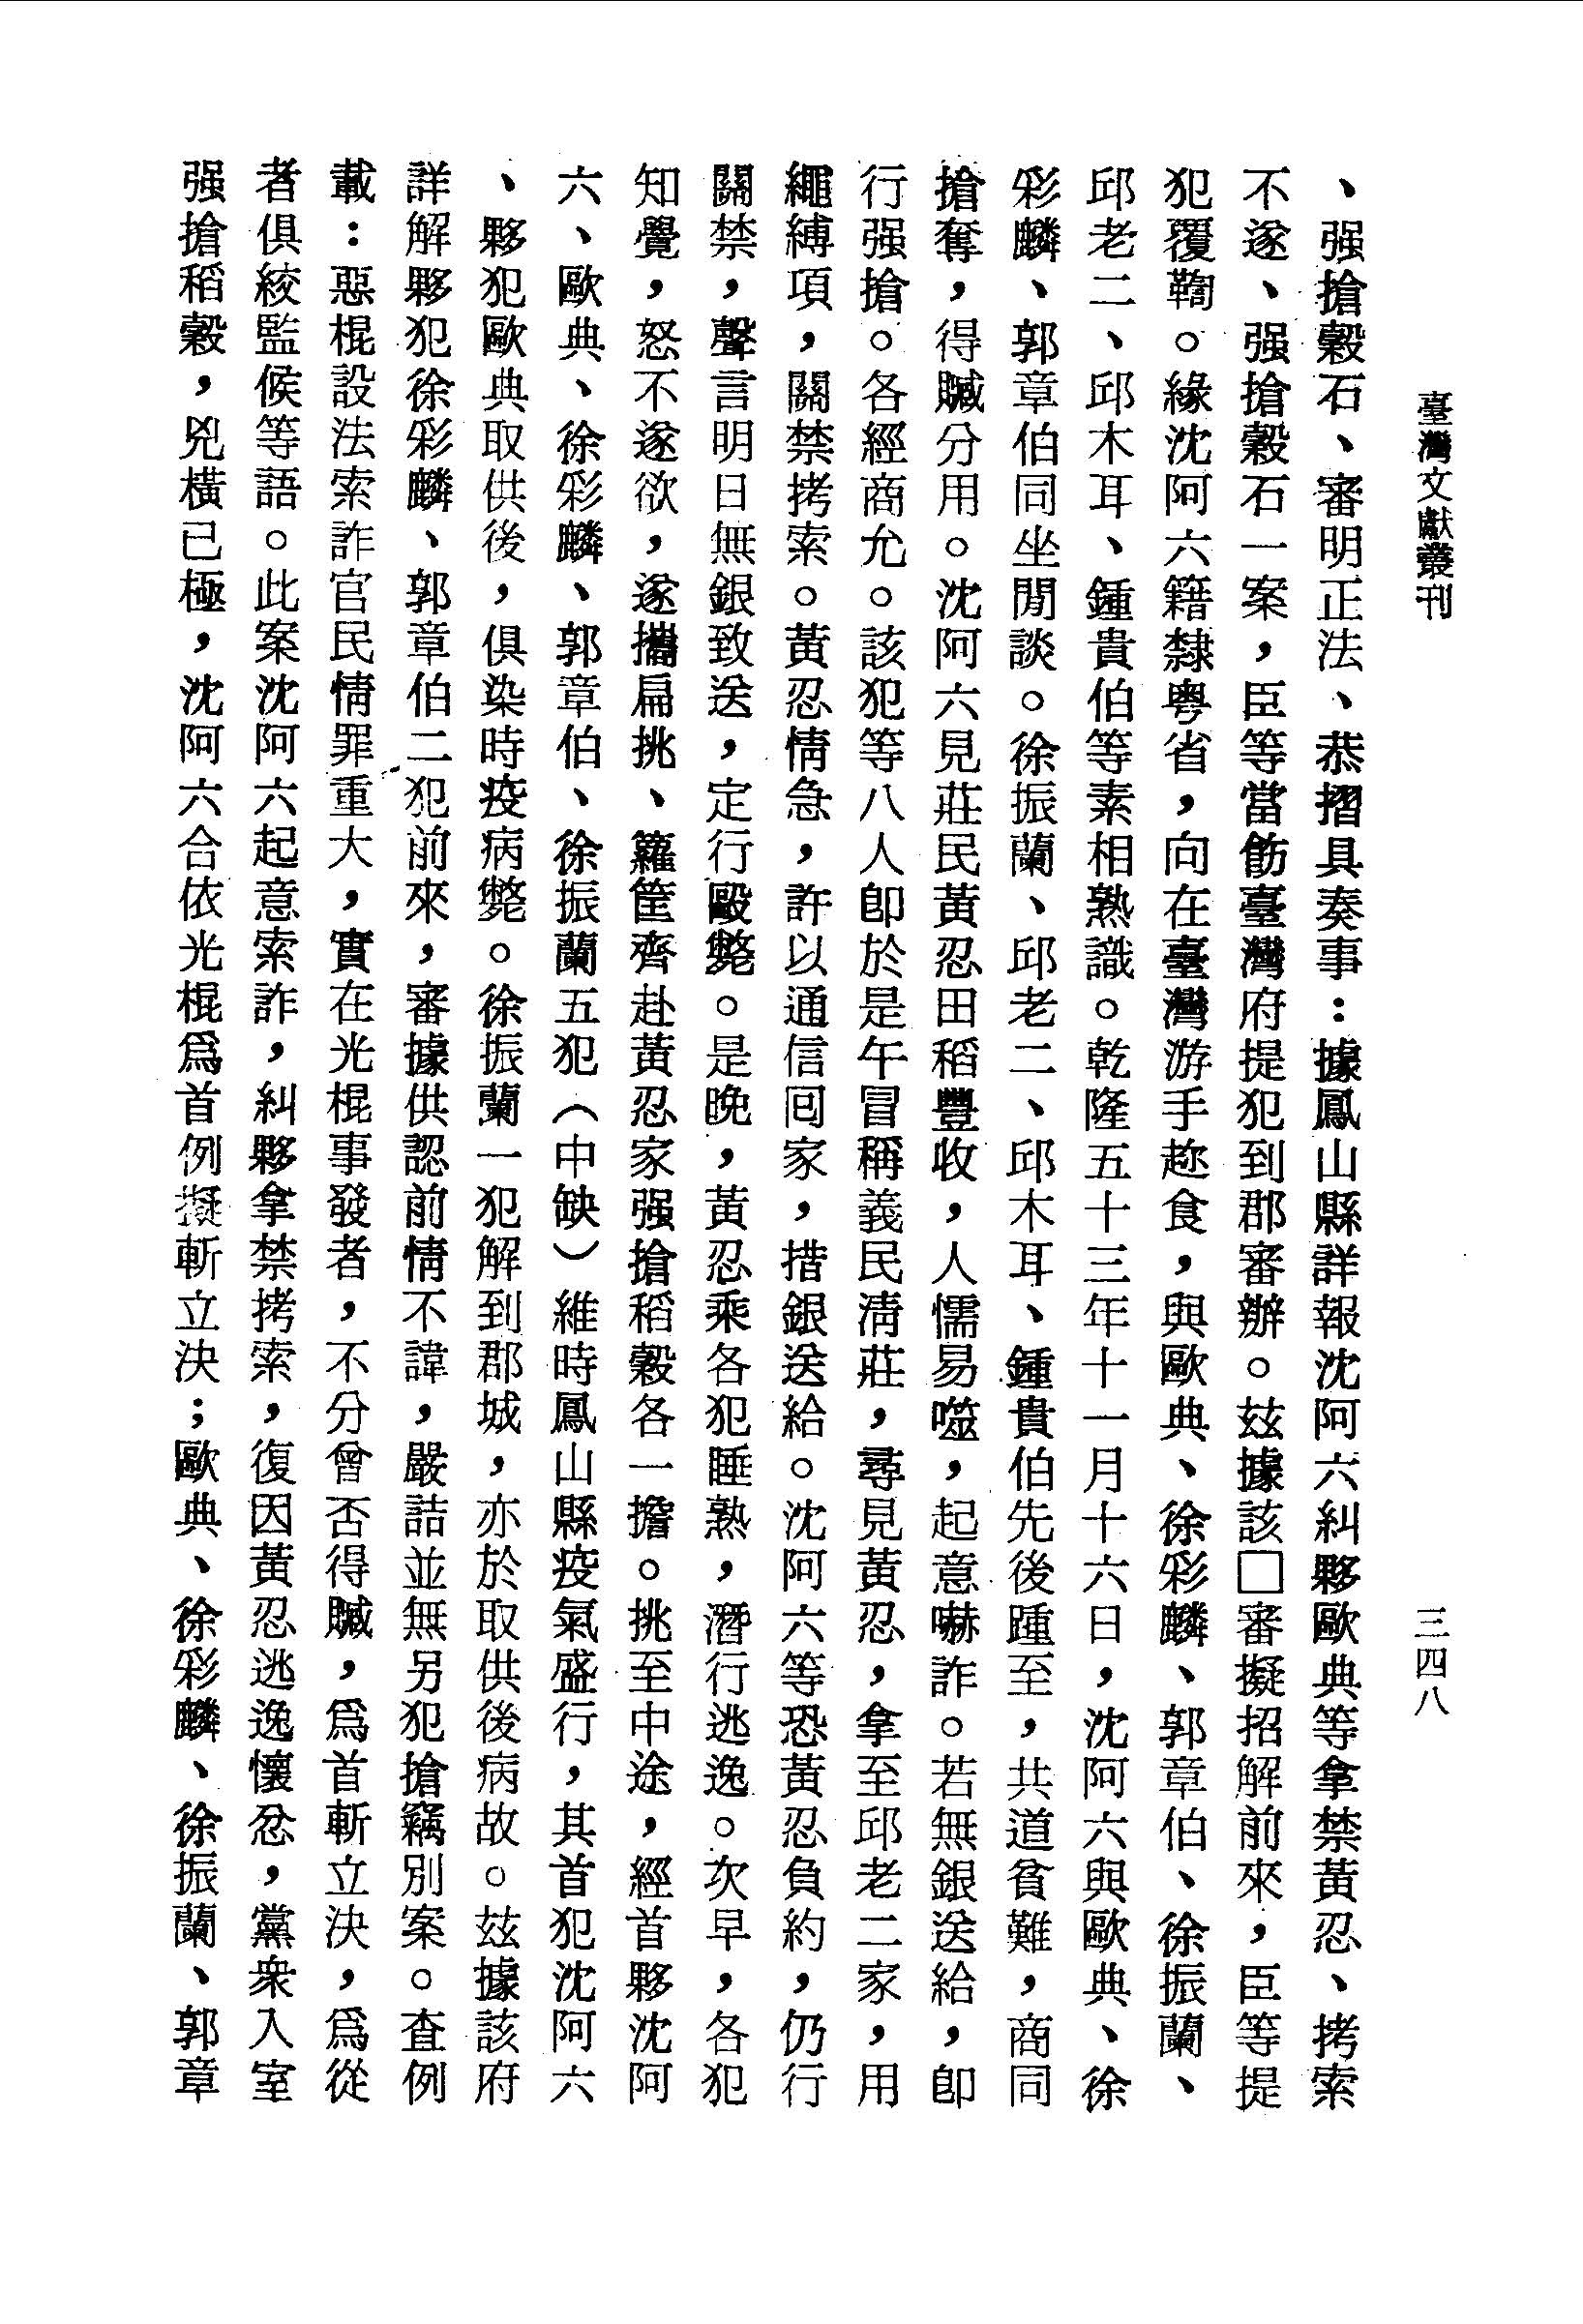 臺灣文獻叢刊
三四八
、强搶穀石、審明正法、恭摺具奏事：據鳳山縣詳報沈阿六糾夥歐典等拿禁黃忍、拷索
不遂、强搶穀石一案，臣等當飭臺灣府提犯到郡審辦。玆據該□審擬招解前來，臣等提
犯覆鞫。緣沈阿六籍隸粤省，向在臺灣游手趂食，與歐典、徐彩麟、郭章伯、徐振蘭、
邱老二、邱木耳、鍾貴伯等素相熟識。乾隆五十三年十一月十六日，沈阿六與歐典、徐
彩麟、郭章伯同坐閒談。徐振蘭、邱老二、邱木耳、鍾貴伯先後踵至，共道貧難，商同
搶奪，得贓分用。沈阿六見莊民黃忍田稻豐收，人懦易噬，起意嚇詐。若無銀送給，卽
行强搶。各經商允。該犯等八人卽於是午冒稱義民淸莊，尋見黃忍，拿至邱老二家，用
繩縛項，關禁拷索。黃忍情急，許以通信囘家，措銀送給。沈阿六等恐黃忍負約，仍行
關禁，聲言明日無銀致送，定行毆斃。是晚，黃忍乘各犯睡熟，潛行逃逸。次早，各犯
知覺，怒不遂欲，遂攜扁挑、籮筐齊赴黃忍家强搶稻穀各一擔。挑至中途，經首夥沈阿
六、歐典、徐彩麟、郭章伯、徐振蘭五犯（中缺）維時鳳山縣疫氣盛行，其首犯沈阿六
、夥犯歐典取供後，俱染時疫病斃。徐振蘭一犯解到郡城，亦於取供後病故。玆據該府
詳解夥犯徐彩麟、郭章伯二犯前來，審據供認前情不諱，嚴詰並無另犯搶竊別案。查例
載：惡棍設法索詐官民情罪重大，實在光棍事發者，不分曾否得贓，爲首斬立決，爲從
者俱絞監候等語。此案沈阿六起意索詐，糾夥拿禁拷索，復因黃忍逃逸懷忿，黨衆入室
强搶稻穀，兇橫已極，沈阿六合依光棍爲首例擬斬立決；歐典、徐彩麟、徐振蘭、郭章